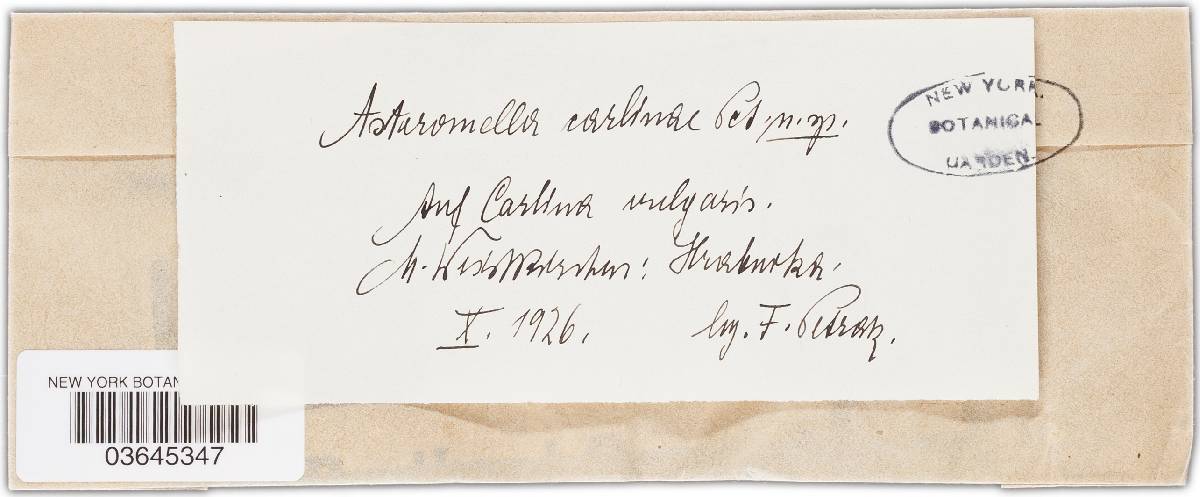 Asteromella carlinae Pet. n. sp.
NEW YORK
BOTANICAL
GARDEN
Auf Carlina vulgaris.
M. Weisskirchen: Hrabuvka.
X. 1926. leg. F. Petrak.
NEW YORK BOTAN
03645347